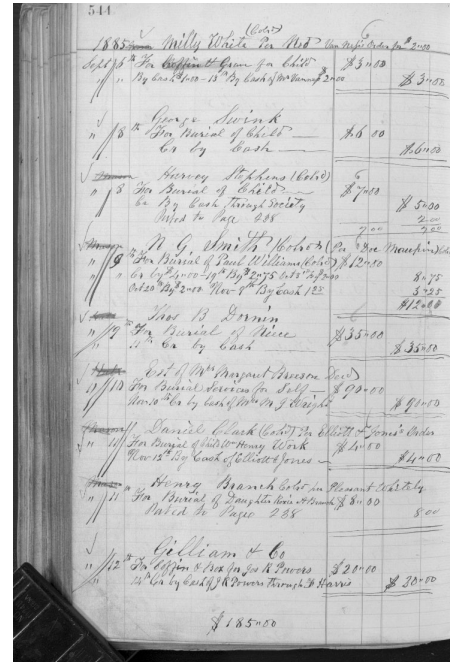 544
(Cold)
1885 Milly White Per Ned Van Ness Order for $2"00
Sept 6th For Coffin & Grave for Child $3"00
" " By Cash $1.00 - 18th By Cash of Mr Vanness $2"00 $3"00
George Swink
" 8th For Burial of Child $6"00
Cr by Cash $6"00
Harvey Stephens (Cold)
" 8 For Burial of Child $7"00
Cr By Cash through Society $5"00
Posted to Page 238 2"00
7"00 7"00
N G Smith (Cold) Per Geo Maupin
" 9th For Burial of Paul Williams (Cold) $12"00
" " Cr by $4"00 - 19th By $2"75 Oct 2d $2"00 8"75
Oct 20th By $2"00 Nov 9th By Cash 1.25 3"25
$12"00
Thos B Dornin
" 9th For Burial of Niece $35"00
" 11th Cr by Cash $35"00
Est of Mrs Margaret Dec'd
" 10 For Burial Services for Self $90"00
10th Cr by Cash of Mr N J Wright $90"00
Daniel Clark (Cold) Per Elliott & Jones Order
" 11 For Burial of Child Henry Work $4"00
Nov 12th By Cash of Elliott & Jones $4"00
Henry Branch Cold in Pleasant Society
" 11 For Burial of Daughter A Branch $8"00
Posted to Page 238 8"00
Gilliam & Co
" 12th For Coffin & Box for Jas R Powers $20"00
" 14th Cr by Cash of J R Powers through Harris $20"00
$185"00